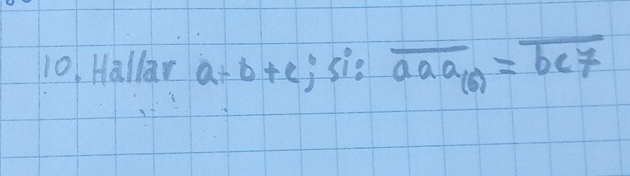 10. Hallar a+b+c; si: \overline{aaa}_{(6)} = \overline{bc7}